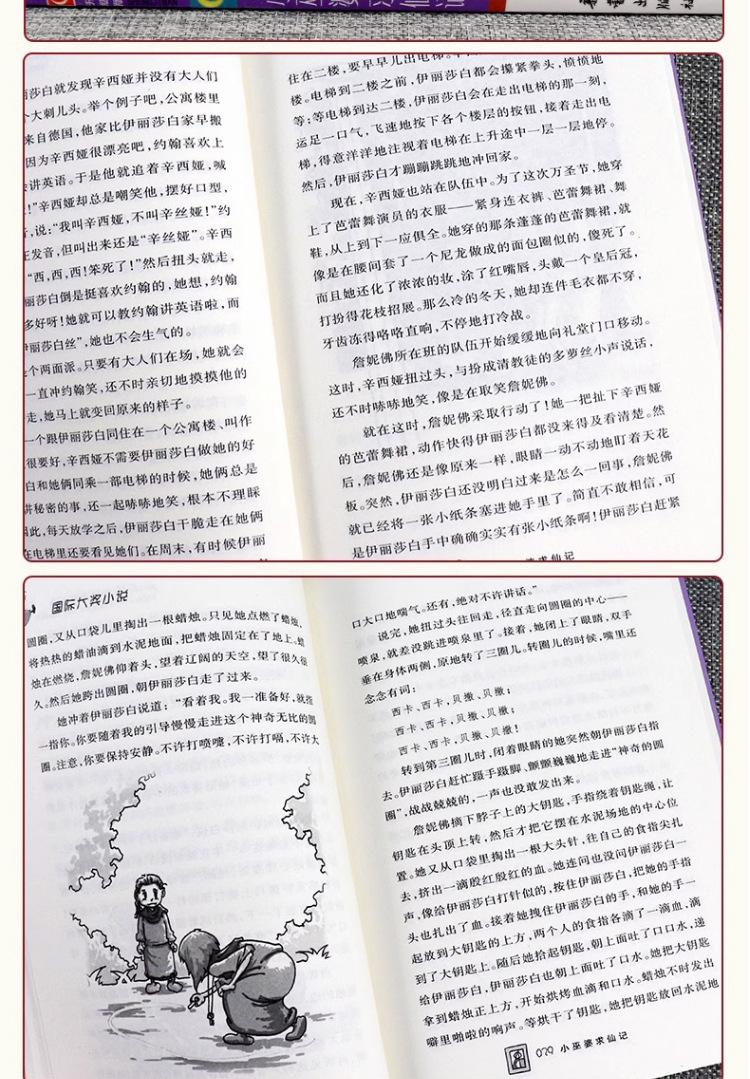 莎白就发现辛西娅并没有大人们
大刺儿头。举个例子吧,公寓楼里
来自德国,他家比伊丽莎白家早搬
因为辛西娅很漂亮吧,约翰喜欢上
讲英语。于是他就追着辛西娅,喊
!”辛西娅却总是嘲笑他,摆好口型,
,说:“我叫辛西娅,不叫辛丝娅!”约
发音,但叫出来还是“辛丝娅”。辛西
“西,西,西!笨死了!”然后扭头就走,
丽莎白倒是挺喜欢约翰的,她想,约翰
多好呀!她就可以教约翰讲英语啦,而
伊丽莎白丝”,她也不会生气的。
个两面派。只要有大人们在场,她就会
一直冲约翰笑,还不时亲切地摸摸他的
走,她马上就变回原来的样子。
一个跟伊丽莎白同住在一个公寓楼、叫作
很要好,辛西娅不需要伊丽莎白做她的好
白和她俩同乘一部电梯的时候,她俩总是
讲秘密的事,还一起哧哧地笑,根本不理睬
因此,每天放学之后,伊丽莎白干脆走在她俩
在电梯里还要看见她们。在周末,有时候伊丽
住在二楼,要早早儿出电梯。
楼。电梯到二楼之前,伊丽莎白都会攥紧拳头,愤愤地
等;等电梯到达二楼,伊丽莎白会在走出电梯的那一刻,
运足一口气,飞速地按下各个楼层的按钮,接着走出电
梯,得意洋洋地注视着电梯在上升途中一层一层地停。
然后,伊丽莎白才蹦蹦跳跳地冲回家。
现在,辛西娅也站在队伍中。为了这次万圣节,她穿
上了芭蕾舞演员的衣服——紧身连衣裤、芭蕾舞裙、舞
鞋,从上到下一应俱全。她穿的那条蓬蓬的芭蕾舞裙,就
像是在腰间套了一个尼龙做成的面包圈似的,傻死了。
而且她还化了浓浓的妆,涂了红嘴唇,头戴一个皇后冠,
打扮得花枝招展。那么冷的冬天,她却连件毛衣都不穿,
牙齿冻得咯咯直响,不停地打冷战。
詹妮佛所在班的队伍开始缓缓地向礼堂门口移动。
这时,辛西娅扭过头,与扮成清教徒的多萝丝小声说话,
还不时哧哧地笑,像是在取笑詹妮佛。
就在这时,詹妮佛采取行动了!她一把扯下辛西娅
的芭蕾舞裙,动作快得伊丽莎白都没来得及看清楚。然
后,詹妮佛还是像原来一样,眼睛一动不动地盯着天花
板。突然,伊丽莎白还没明白过来是怎么一回事,詹妮佛
就已经将一张小纸条塞进她手里了。简直不敢相信,可
是伊丽莎白手中确确实实有张小纸条啊!伊丽莎白赶紧
婆求仙记
国际大奖小说
圆圈,又从口袋儿里掏出一根蜡烛。只见她点燃了蜡烛,
将热热的蜡油滴到水泥地面,把蜡烛固定在了地上。蜡
烛在燃烧,詹妮佛仰着头,望着辽阔的天空,望了很久很
久。然后她跨出圆圈,朝伊丽莎白走了过来。
她冲着伊丽莎白说道:“看着我。我一准备好,就指
一指你。你要随着我的引导慢慢走进这个神奇无比的圆
圈。注意,你要保持安静。不许打喷嚏,不许打嗝,不许大
口大口地喘气。还有,绝对不许讲话。”
说完,她扭过头往回走,径直走向圆圈的中心——
喷泉,就差没跳进喷泉里了。接着,她闭上了眼睛,双手
垂在身体两侧,原地转了三圈儿。转圈儿的时候,嘴里还
念念有词:
西卡、西卡,贝撒、贝撒;
西卡、西卡,贝撒、贝撒;
西卡、西卡,贝撒、贝撒!
转到第三圈儿时,闭着眼睛的她突然朝伊丽莎白指
去。伊丽莎白赶忙蹑手蹑脚、颤颤巍巍地走进“神奇的圆
圈”,战战兢兢的,一声也没敢发出来。
詹妮佛摘下脖子上的大钥匙,手指绕着钥匙绳,让
钥匙在头顶上转,然后才把它摆在水泥场地的中心位
置。她又从口袋里掏出一根大头针,往自己的食指尖扎
去,挤出一滴殷红殷红的血。她连问也没问伊丽莎白一
声,像给伊丽莎白打针似的,按住伊丽莎白,把她的手指
头也扎出了血。接着她拽住伊丽莎白的手,和她的手一
起放到大钥匙的上方,两个人的食指各滴了一滴血,滴
到了大钥匙上。随后她拾起钥匙,朝上面吐了口口水,递
给伊丽莎白,伊丽莎白也朝上面吐了口水。她把大钥匙
拿到蜡烛正上方,开始烘烤血滴和口水。蜡烛不时发出
噼里啪啦的响声。等烘干了钥匙,她把钥匙放回水泥地
029 小巫婆求仙记